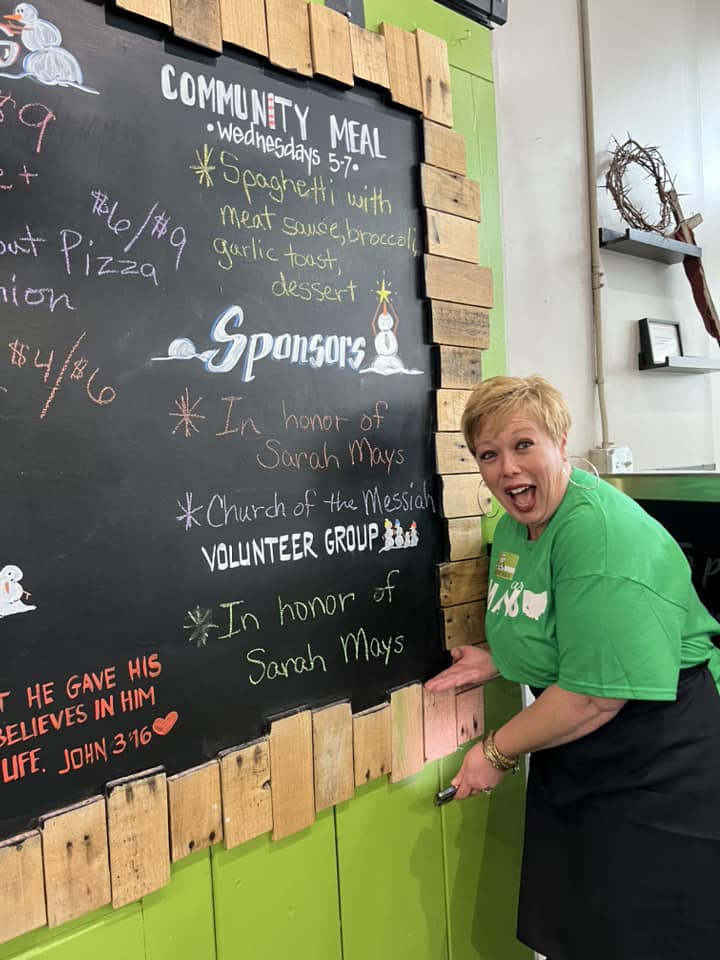 9
$6/$9
Pizza
nion
$4/$6
HE GAVE HIS
BELIEVES IN HIM
LIFE. JOHN 3:16
COMMUNITY MEAL
•Wednesdays 5-7•
Spaghetti with
meat sauce, broccoli,
garlic toast,
dessert
Sponsors
In honor of
Sarah Mays
Church of the Messiah
VOLUNTEER GROUP
In honor of
Sarah Mays